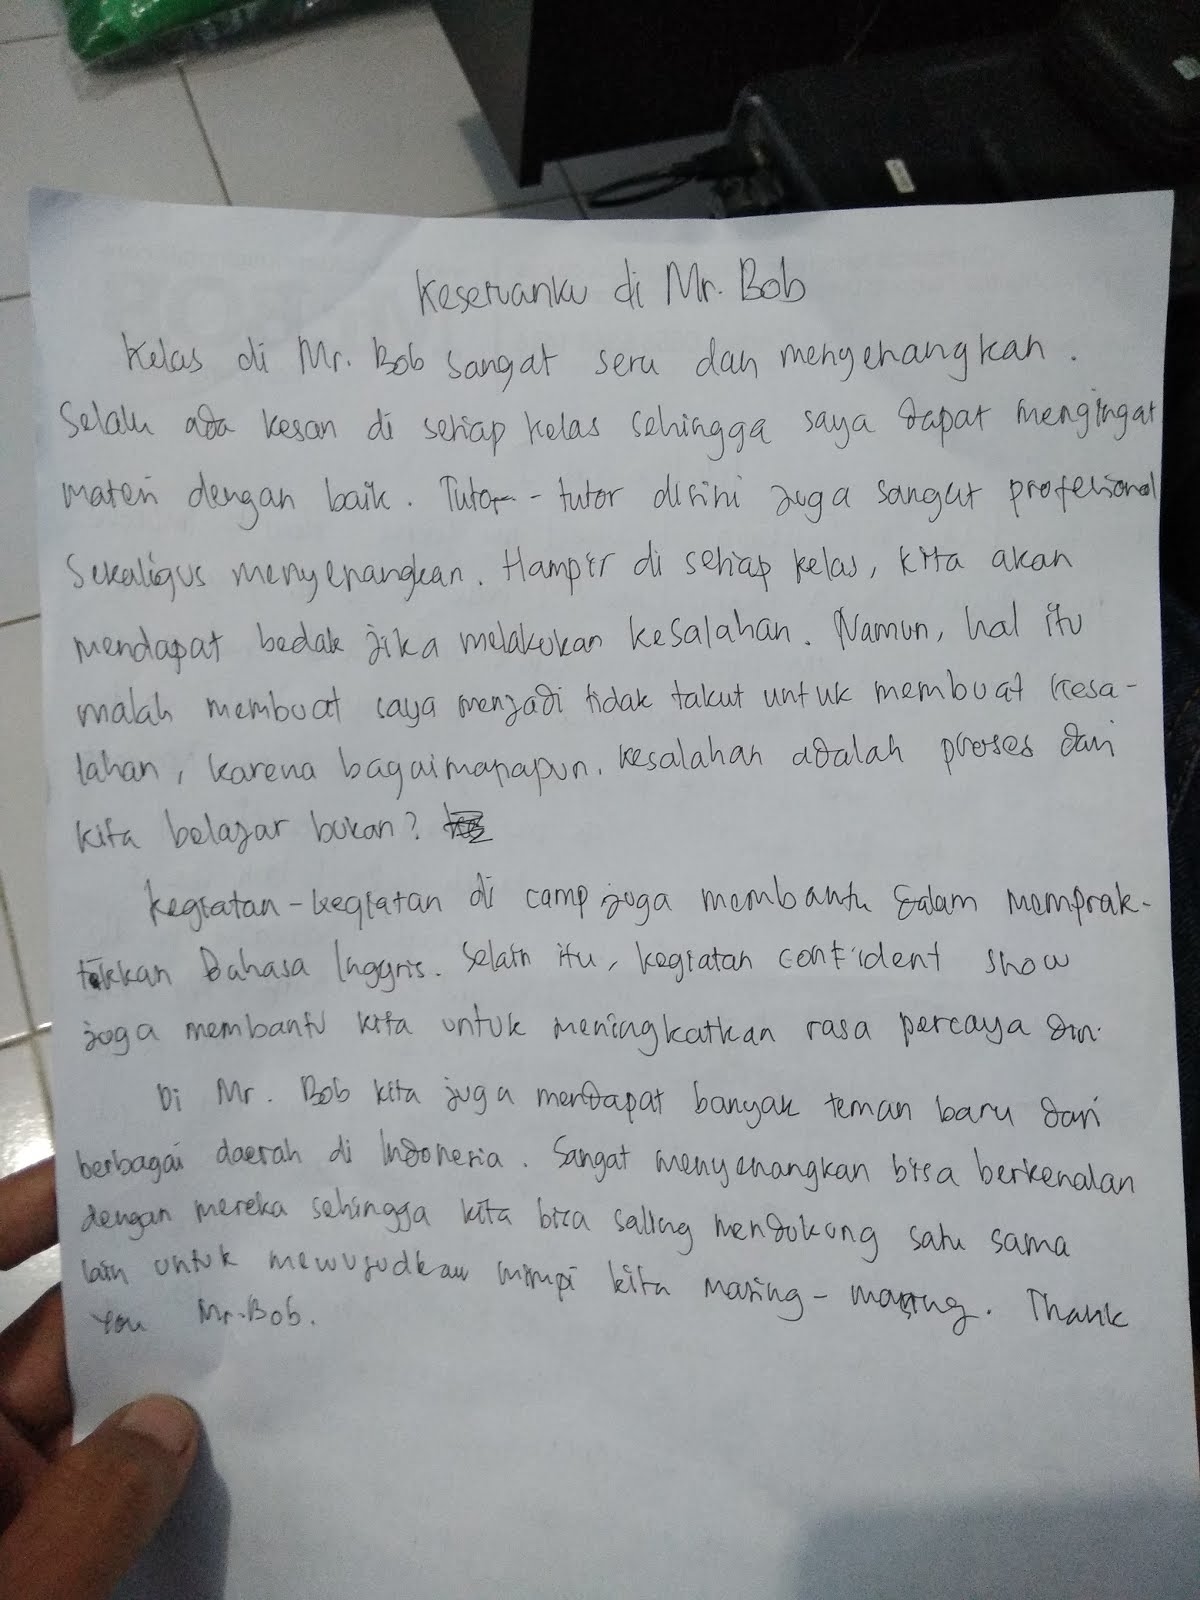 Keseruanku di Mr. Bob
Kelas di Mr. Bob sangat seru dan menyenangkan.
Selalu ada kesan di setiap kelas sehingga saya dapat mengingat
materi dengan baik. Tutor-tutor disini juga sangat profesional
Sekaligus menyenangkan. Hampir di setiap kelas, kita akan
mendapat bedak jika melakukan kesalahan. Namun, hal itu
malah membuat saya menjadi tidak takut untuk membuat kesa-
lahan, karena bagaimanapun, kesalahan adalah proses dari
kita belajar bukan?
Kegiatan-kegiatan di camp juga membantu dalam memprak-
tikkan Bahasa Inggris. Selain itu, kegiatan confident show
juga membantu kita untuk meningkatkan rasa percaya diri.
Di Mr. Bob kita juga mendapat banyak teman baru dari
berbagai daerah di Indonesia. Sangat menyenangkan bisa berkenalan
dengan mereka sehingga kita bisa saling mendukung satu sama
lain untuk mewujudkan mimpi kita masing-masing. Thank
You Mr. Bob.